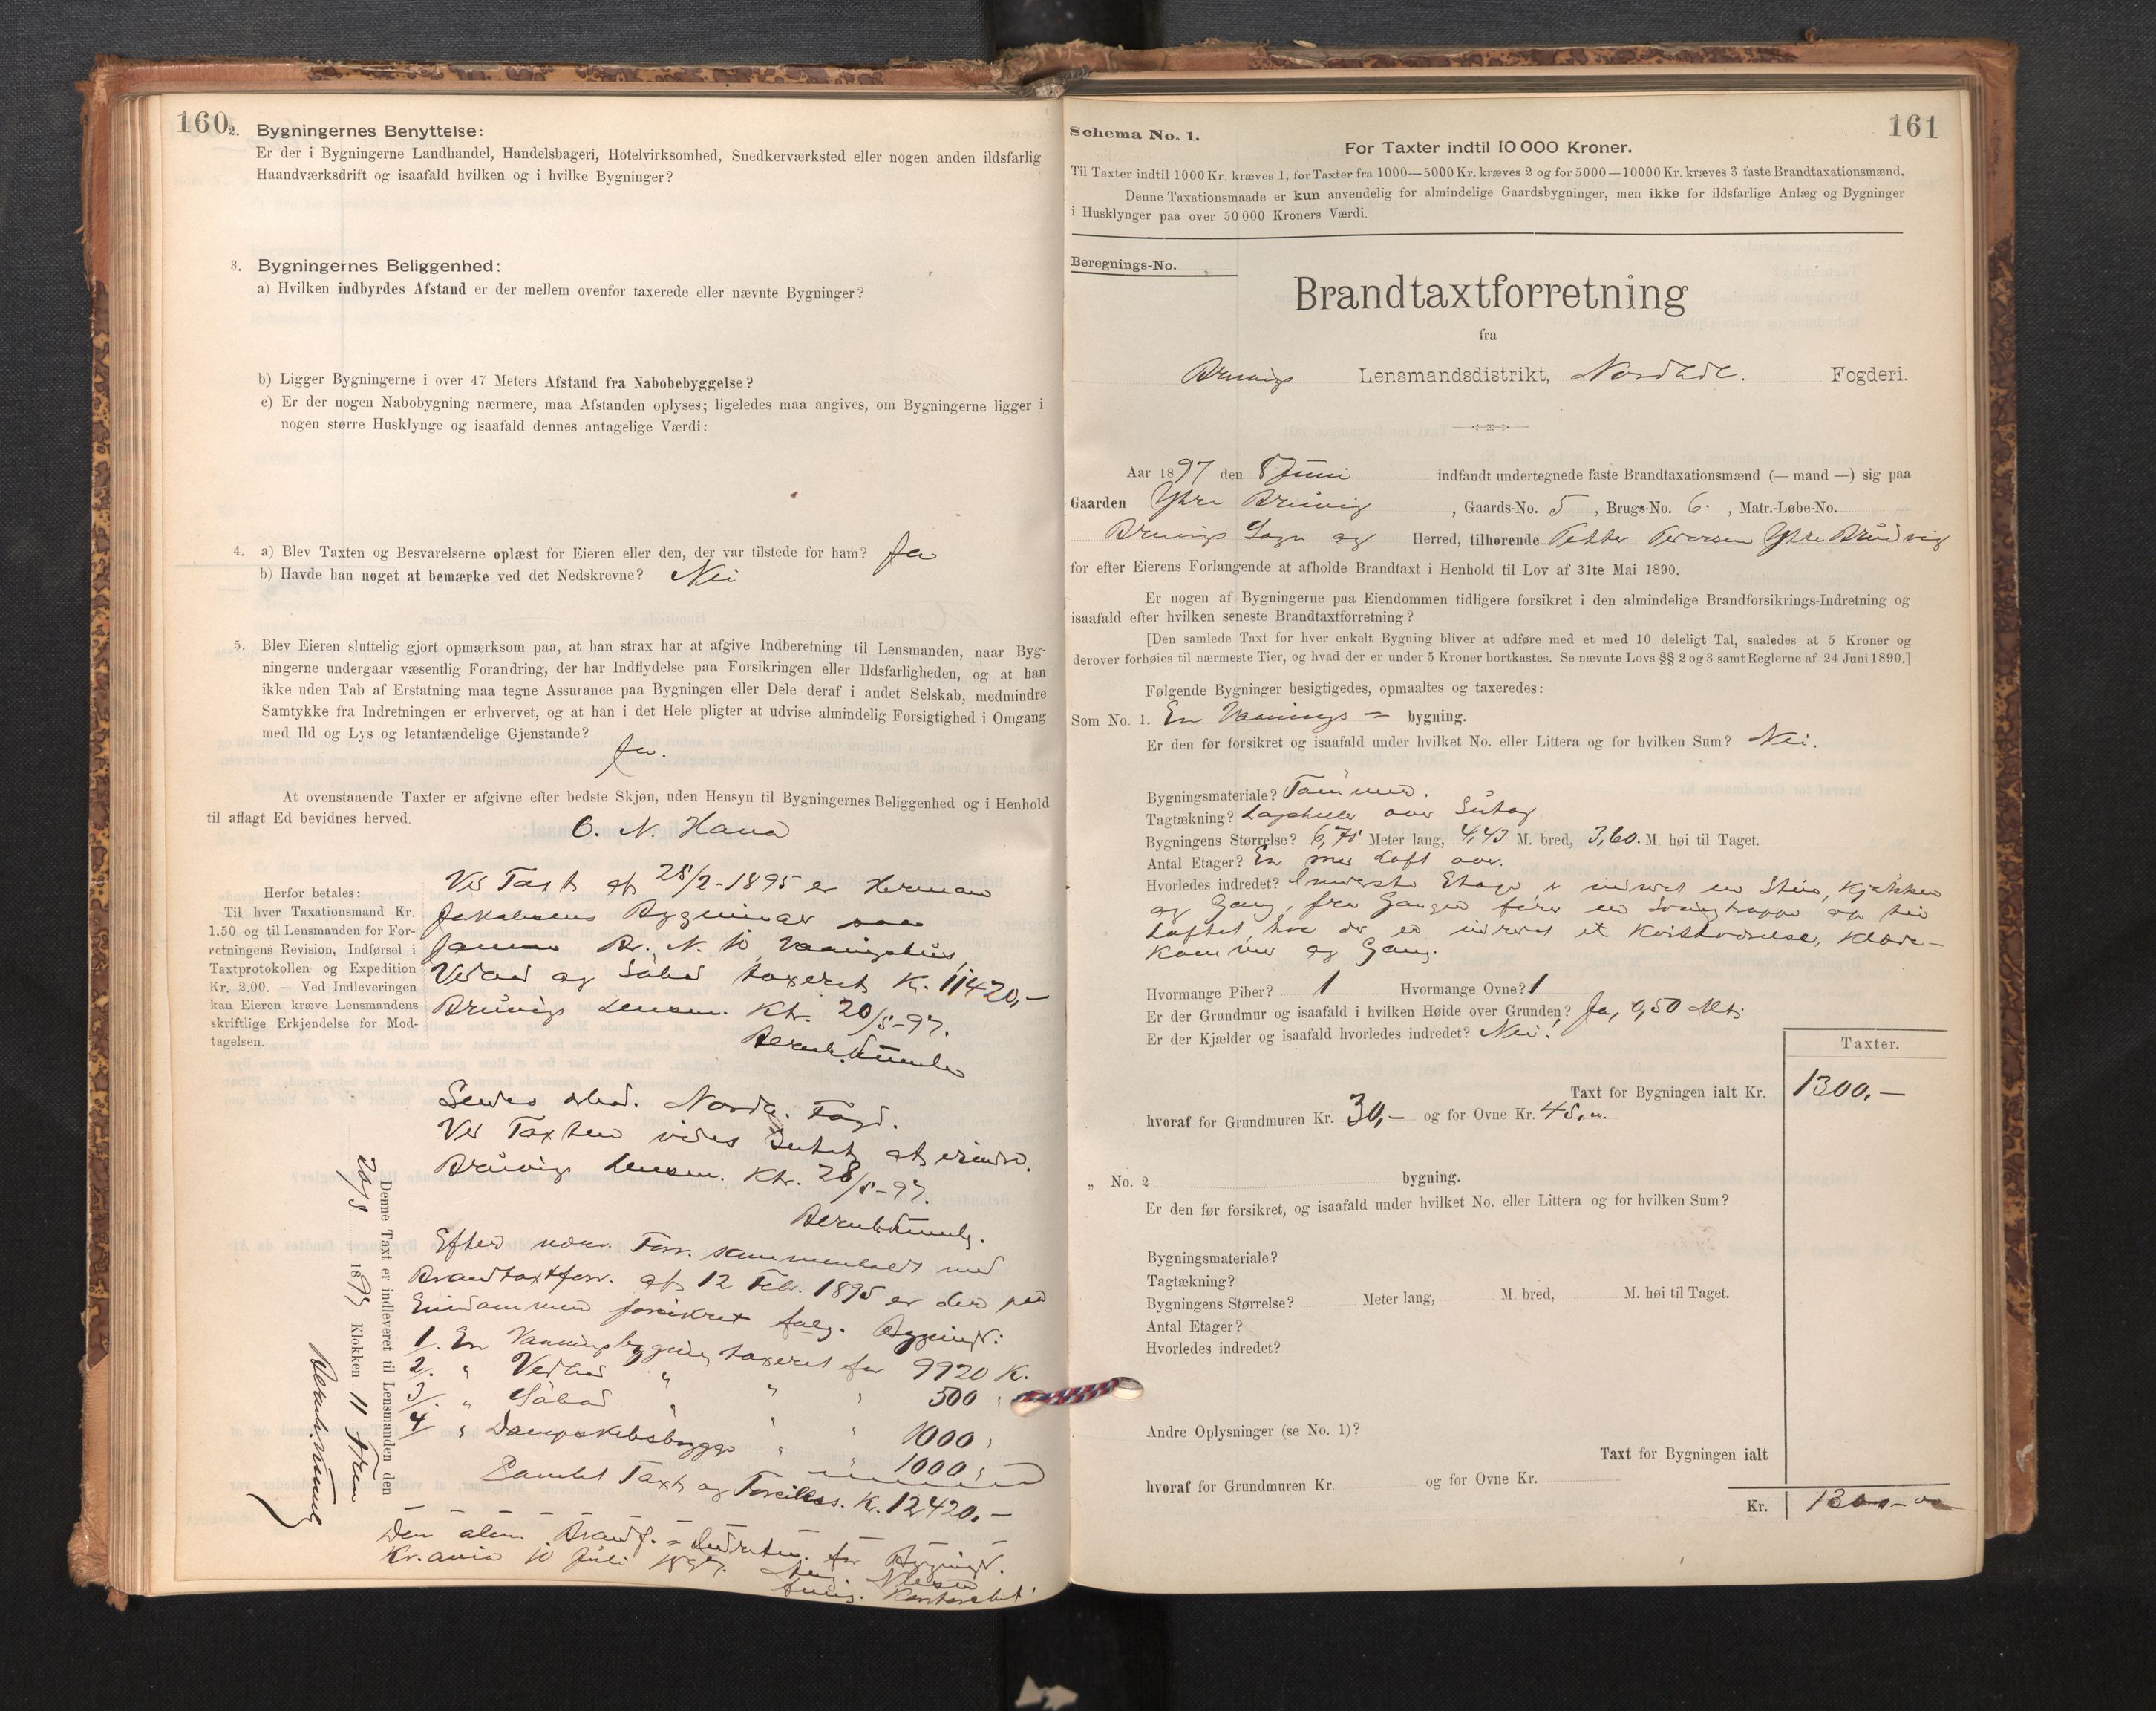 160
2. Bygningernes Benyttelse:
Er der i Bygningerne Landhandel, Handelsbageri, Hotelvirksomhed, Snedkerværksted eller nogen anden ildsfarlig
Haandværksdrift og isaafald hvilken og i hvilke Bygninger?
3. Bygningernes Beliggenhed:
a) Hvilken indbyrdes Afstand er der mellem ovenfor taxerede eller nævnte Bygninger?
b) Ligger Bygningerne i over 47 Meters Afstand fra Nabobebyggelse?
c) Er der nogen Nabobygning nærmere, maa Afstanden oplyses; ligeledes maa angives, om Bygningerne ligger i
nogen større Husklynge og isaafald dennes antagelige Værdi:
4. a) Blev Taxten og Besvarelserne oplæst for Eieren eller den, der var tilstede for ham? Ja
b) Havde han noget at bemærke ved det Nedskrevne? Nei
5. Blev Eieren sluttelig gjort opmærksom paa, at han strax har at afgive Indberetning til Lensmanden, naar Byg-
ningerne undergaar væsentlig Forandring, der har Indflydelse paa Forsikringen eller Ildsfarligheden, og at han
ikke uden Tab af Erstatning maa tegne Assurance paa Bygningen eller Dele deraf i andet Selskab, medmindre
Samtykke fra Indretningen er erhvervet, og at han i det Hele pligter at udvise almindelig Forsigtighed i Omgang
med Ild og Lys og letantændelige Gjenstande?
Ja.
At ovenstaaende Taxter er afgivne efter bedste Skjøn, uden Hensyn til Bygningernes Beliggenhed og i Henhold
til aflagt Ed bevidnes herved.
O. N. Hana
Herfor betales:
Til hver Taxationsmand Kr.
1.50 og til Lensmanden for For-
retningens Revision, Indførsel i
Taxtprotokollen og Expedition
Kr. 2.00. — Ved Indleveringen
kan Eieren kræve Lensmandens
skriftlige Erkjendelse for Mod-
tagelsen.
Ved Taxt af 28/2-1895 er Herman
Jakobsens Bygninger paa
samme Br. N. 10, Vaaningshus,
Vedhus og Søbod taxeret Kr. 11420,-
Bruvigs Lensm. Ktr. 20/5-97.
Sendes Nordh. Fogd.
Ved Taxten vides Intet at erindre.
Bruvigs Lensm. Ktr. 28/5-97.
Efter nærv. Forr. sammenholdt med
Brandtaxtforr. af 12 Febr. 1895 er der paa
Eiendommen forsikret følg. Bygningr:
1. En Vaaningsbygning taxeret for 9920 K.
2. " Vedhus " " 500 "
3. " Søbod " " " 1000 "
4. " Dampskibsbrygge " " 1000 "
Samlet Taxt og Forsikrs. Kr. 12420.-
Den alm. Brandf.-Indretn. for Bygningr.
Kr.ania 10 Juli 1897.
Denne Taxt er indleveret til Lensmanden den
20/5 1895 Klokken 11 Frm
161
Schema No. 1.
For Taxter indtil 10 000 Kroner.
Til Taxter indtil 1000 Kr. kræves 1, for Taxter fra 1000—5000 Kr. kræves 2 og for 5000—10000 Kr. kræves 3 faste Brandtaxationsmænd.
Denne Taxationsmaade er kun anvendelig for almindelige Gaardsbygninger, men ikke for ildsfarlige Anlæg og Bygninger
i Husklynger paa over 50 000 Kroners Værdi.
Beregnings-No.
Brandtaxtforretning
fra
Bruvigs Lensmandsdistrikt, Nordhdl. Fogderi.
Aar 1897 den 8 Juni indfandt undertegnede faste Brandtaxationsmænd (—mand—) sig paa
Gaarden Ytre Bruvig , Gaards-No. 5 , Brugs-No. 6. , Matr.-Løbe-No.
Bruvigs Sogn og Herred, tilhørende Petter Pedersen Ytre Brudvig
for efter Eierens Forlangende at afholde Brandtaxt i Henhold til Lov af 31te Mai 1890.
Er nogen af Bygningerne paa Eiendommen tidligere forsikret i den almindelige Brandforsikrings-Indretning og
isaafald efter hvilken seneste Brandtaxtforretning?
[Den samlede Taxt for hver enkelt Bygning bliver at udføre med et med 10 deleligt Tal, saaledes at 5 Kroner og
derover forhøies til nærmeste Tier, og hvad der er under 5 Kroner bortkastes. Se nævnte Lovs §§ 2 og 3 samt Reglerne af 24 Juni 1890.]
Følgende Bygninger besigtigedes, opmaaltes og taxeredes:
Som No. 1. En Vaanings = bygning.
Er den før forsikret og isaafald under hvilket No. eller Littera og for hvilken Sum? Nei.
Bygningsmateriale? Tømmer.
Tagtækning? Lapheller over Sutag
Bygningens Størrelse? 6,75 Meter lang, 4,43 M. bred, 3,60. M. høi til Taget.
Antal Etager? En med Loft over.
Hvorledes indredet? Innerste Etage er indredet en Stue, Kjøkken
og Gang, fra Gangen fører en Svingtrappe op til
Loftet, hvor der er indredet et Kvistværelse, Klæde-
kammer og Gang.
Hvormange Piber? 1 Hvormange Ovne? 1
Er der Grundmur og isaafald i hvilken Høide over Grunden? Ja, 0,50 Mtr.
Er der Kjælder og isaafald hvorledes indredet? Nei!
Taxter.
Taxt for Bygningen ialt Kr. 1300,-
hvoraf for Grundmuren Kr. 30,- og for Ovne Kr. 45,00.
„ No. 2 bygning.
Er den før forsikret, og isaafald under hvilket No. eller Littera og for hvilken Sum?
Bygningsmateriale?
Tagtækning?
Bygningens Størrelse? Meter lang, M. bred, M. høi til Taget.
Antal Etager?
Hvorledes indredet?
Andre Oplysninger (se No. 1)?
Taxt for Bygningen ialt
hvoraf for Grundmuren Kr. og for Ovne Kr.
Kr. 1300-00